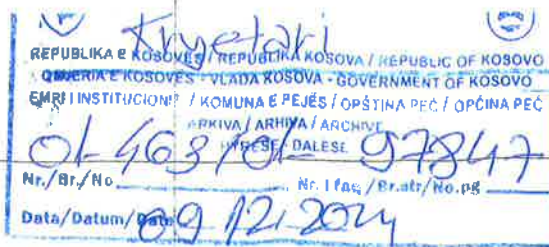 Kryetari
REPUBLIKA E KOSOVËS / REPUBLIKA KOSOVA / REPUBLIC OF KOSOVO
QEVERIA E KOSOVËS - VLADA KOSOVA - GOVERNMENT OF KOSOVO
EMRI I INSTITUCIONIT / KOMUNA E PEJËS / OPŠTINA PEĆ / OPĆINA PEĆ
ARKIVA / ARHIVA / ARCHIVE
HYRËSE / DALËSE
01-463/01- 97847
Nr./Br./No Nr. i faq /Br.str/No.pg
Data/Datum/Date 09.12.2024